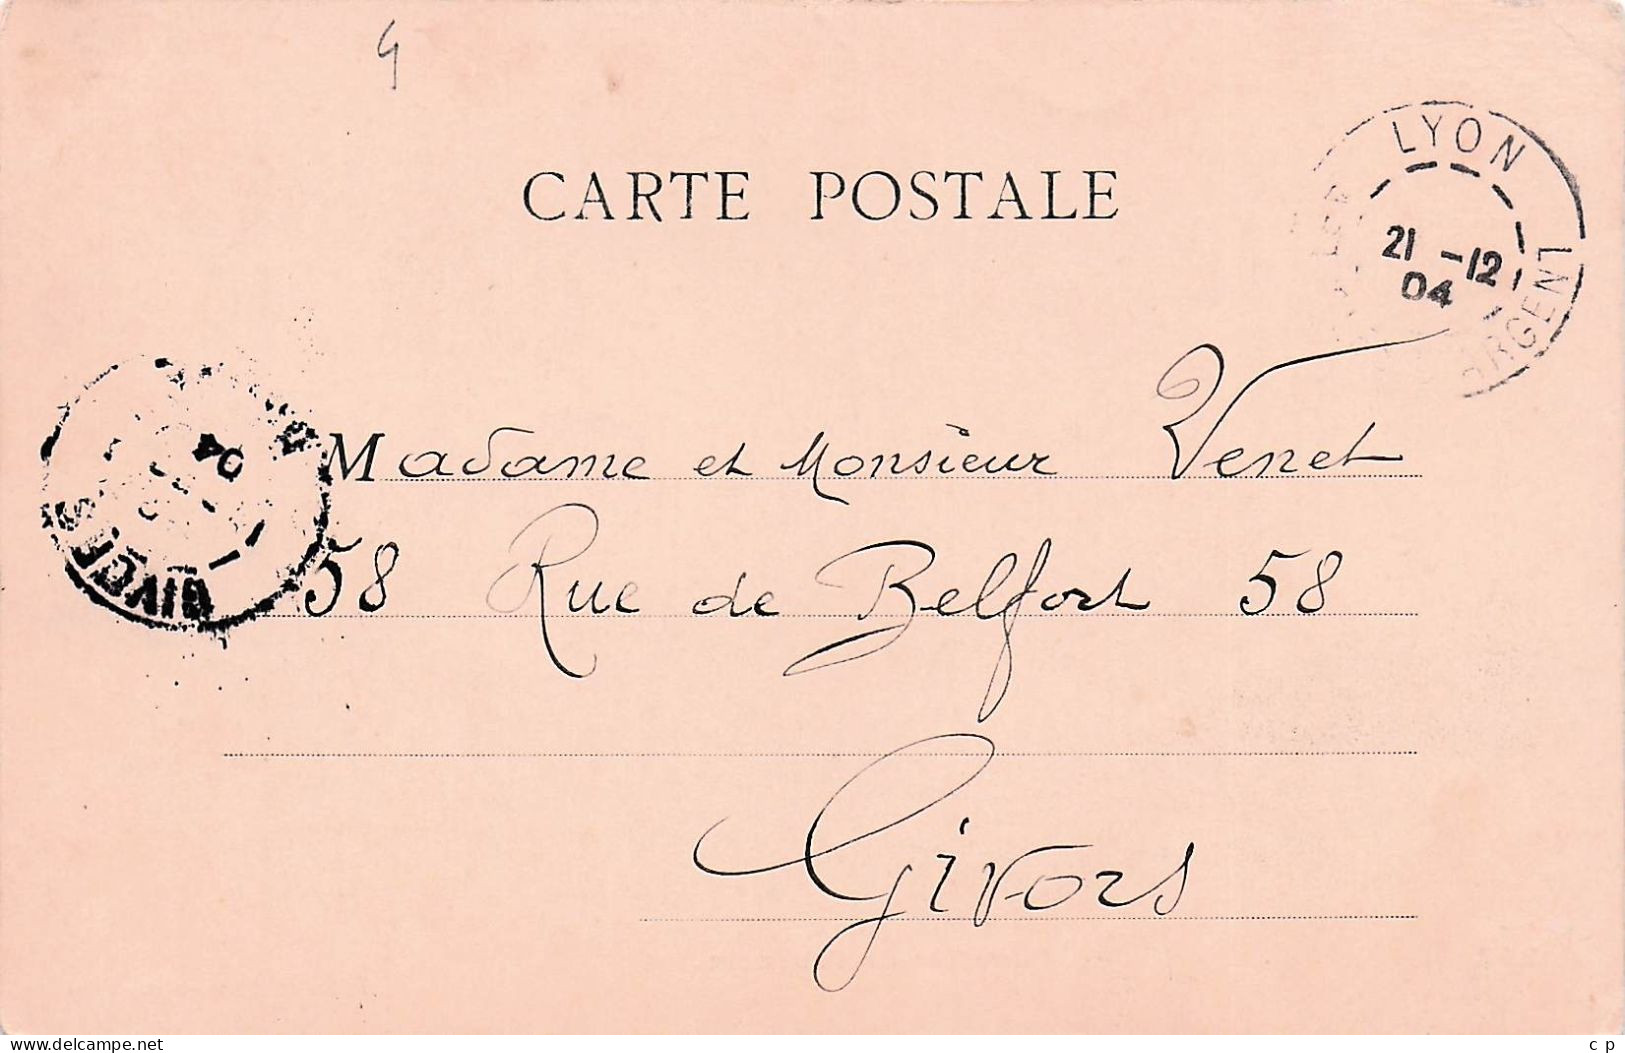 4
CARTE POSTALE
LYON
21 -12
04
04
GIVORS
Madame et Monsieur Venet
58 Rue de Belfort 58
Givors
delcampe.net
c p